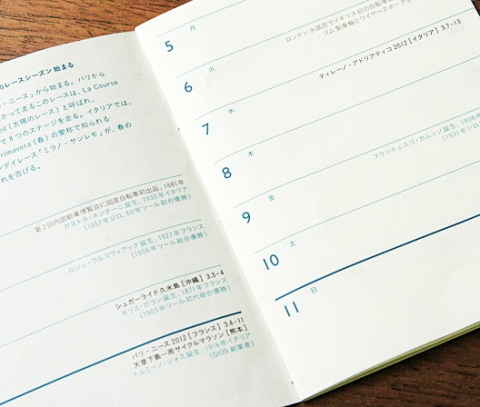 のレースシーズン始まる
・ニース」から始まる。パリから
かって走るこのレースは、La Course
il（太陽のレース）と呼ばれ、
で8つのステージを走る。イタリアでは、
rimavera（春）の愛称で知られる
デイレース「ミラノ-サンレモ」が、春の
れを告げる。
第2回内国勧業博覧会に国産自転車初出品。1881年
ガストネ・ネンチーニ誕生。1930年イタリア
（1957年ジロ、60年ツール総合優勝）
ロジェ・ワルコヴィアック誕生。1927年フランス
（1956年ツール総合優勝）
シュガーライド久米島［沖縄］3.3-4
モリス・ガラン誕生。1871年フランス
（1903年ツール初代総合優勝）
パリ-ニース2012［フランス］3.4-11
天草下島一周サイクルマラソン［熊本］
トルミーノ・ジオス誕生。1916年イタリア
（GIOS創業者）
5 月
ロンドン水晶宮でイギリス初の自転車
ゴム製車輪とワイヤースポークを
6 火
ティレーノ・アドリアティコ2012［イタリア］3.7-13
7 水
8 木
フランチェスコ・カムッソ誕生。1908年
（1931年ジロ
9 金
10 土
11 日